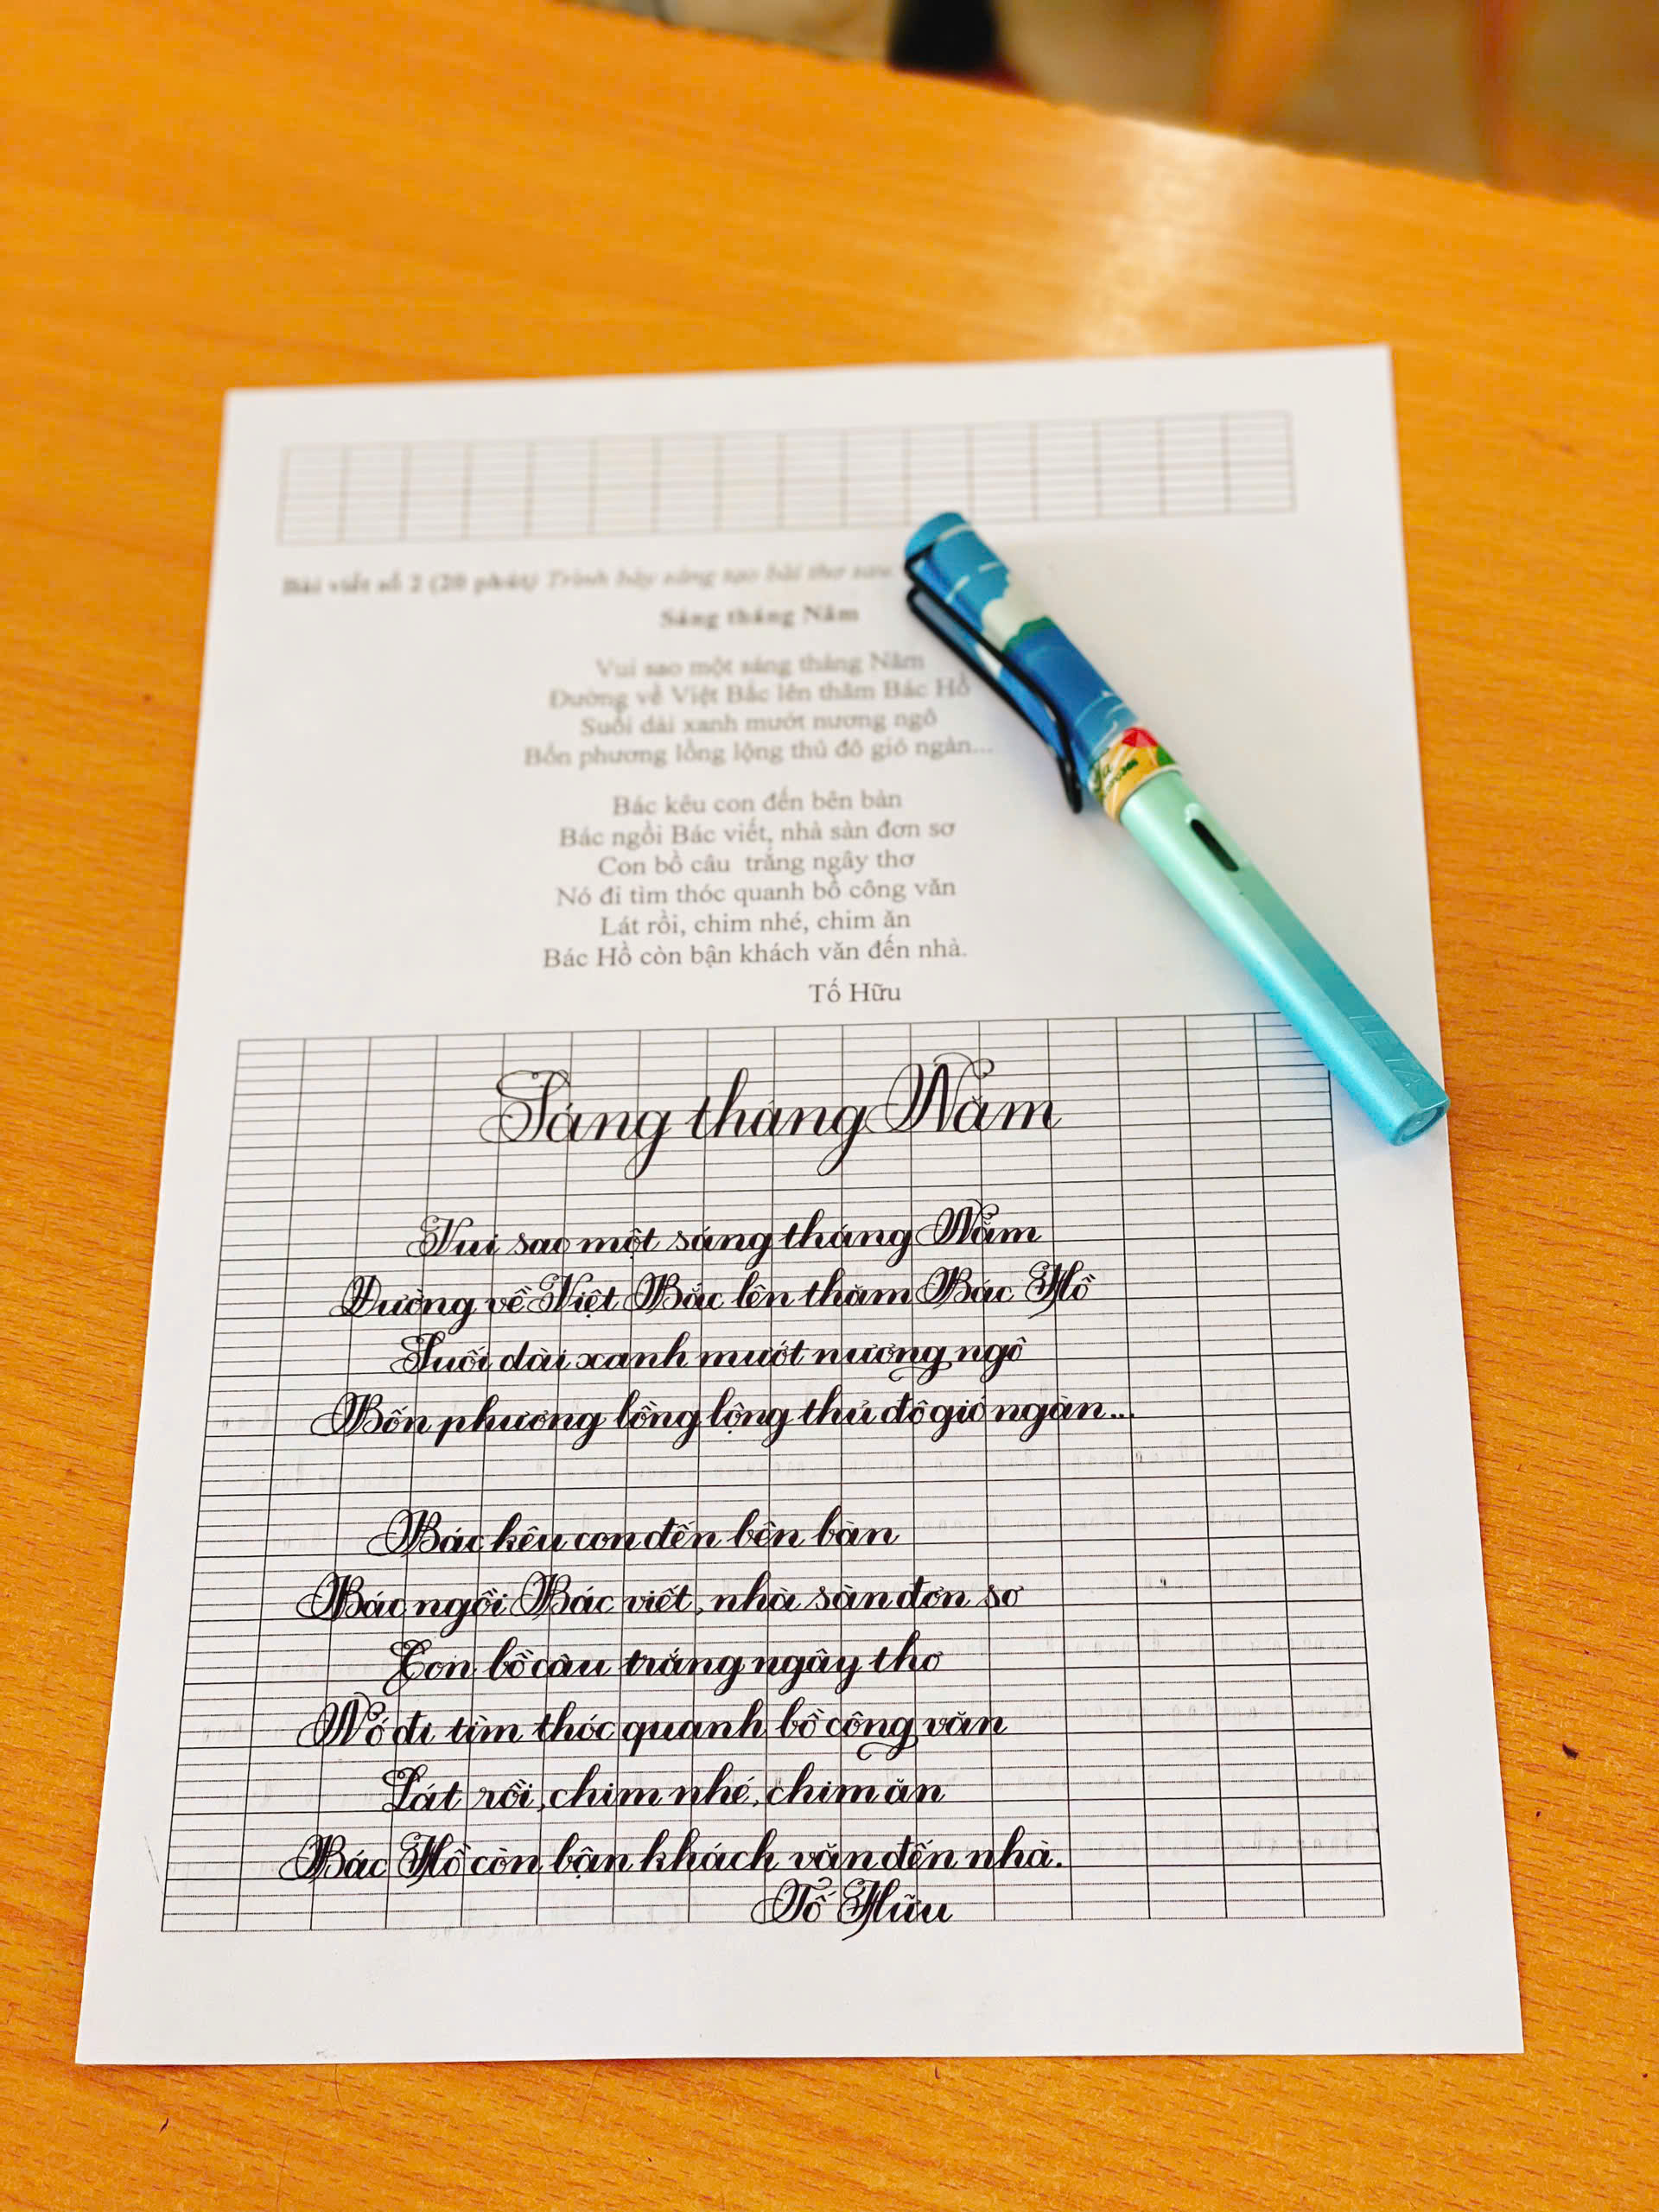 Bài viết số 2 (20 phút) Trình bày sáng tạo bài thơ sau
Sáng tháng Năm
Vui sao một sáng tháng Năm
Đường về Việt Bắc lên thăm Bác Hồ
Suối dài xanh mướt nương ngô
Bốn phương lồng lộng thủ đô gió ngàn...
Bác kêu con đến bên bàn
Bác ngồi Bác viết, nhà sàn đơn sơ
Con bồ câu trắng ngây thơ
Nó đi tìm thóc quanh bồ công văn
Lát rồi, chim nhé, chim ăn
Bác Hồ còn bận khách văn đến nhà.
Tố Hữu
Sáng tháng Năm
Vui sao một sáng tháng Năm
Đường về Việt Bắc lên thăm Bác Hồ
Suối dài xanh mướt nương ngô
Bốn phương lồng lộng thủ đô gió ngàn...
Bác kêu con đến bên bàn
Bác ngồi Bác viết, nhà sàn đơn sơ
Con bồ câu trắng ngây thơ
Nó đi tìm thóc quanh bồ công văn
Lát rồi, chim nhé, chim ăn
Bác Hồ còn bận khách văn đến nhà.
Tố Hữu